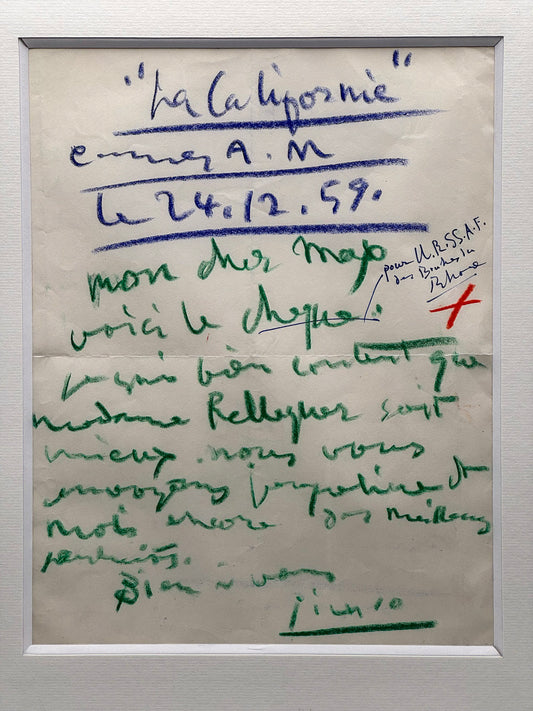 "La Californie"
Cannes A.M
le 24.12.59.
mon cher Me
voici le cheque.
pour U.R.SS.A.F.
des Bouches du
Rhone
je suis bien content que
madame Pellequer soit
mieux. nous vous
envoyons jacqueline et
moi encore des meilleures
pensées.
Bien à vous
Picasso